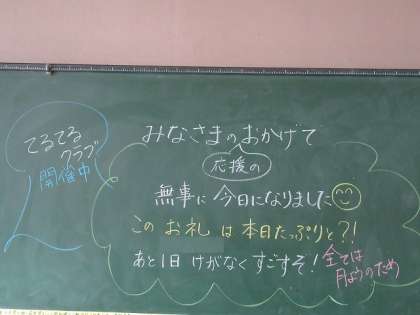 てるてる
クラブ
開催中
みなさまのおかげで
応援の
無事に今日になりました
このお礼は本日たっぷりと?!
あと1日けがなくすごすぞ!
全ては
月ようのため